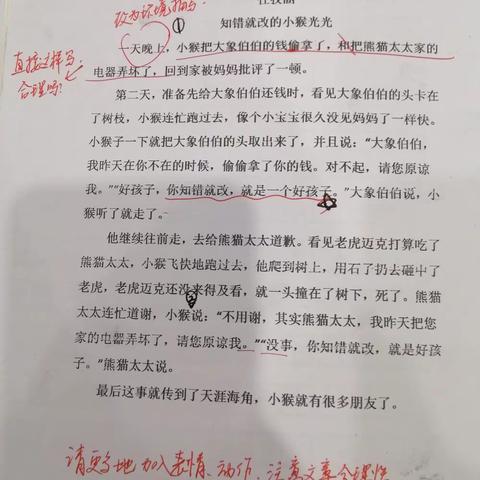 改为环境描写
①
知错就改的小猴光光
一天晚上，小猴把大象伯伯的钱偷拿了，和把熊猫太太家的
直接这样写
合理吗？
电器弄坏了，回到家被妈妈批评了一顿。
第二天，准备先给大象伯伯还钱时，看见大象伯伯的头卡在
了树枝，小猴连忙跑过去，像个小宝宝很久没见妈妈了一样快。
小猴子一下就把大象伯伯的头取出来了，并且说：“大象伯伯，
我昨天在你不在的时候，偷偷拿了你的钱。对不起，请您原谅
我。”“好孩子，你知错就改，就是一个好孩子。”大象伯伯说，小
猴听了就走了。
他继续往前走，去给熊猫太太道歉。看见老虎迈克打算吃了
熊猫太太，小猴飞快地跑过去，他爬到树上，用石了扔去砸中了
老虎，老虎迈克还没来得及看，就一头撞在了树下，死了。熊猫
太太连忙道谢，小猴说：“不用谢，其实熊猫太太，我昨天把您
家的电器弄坏了，请您原谅我。”“没事，你知错就改，就是好孩
子。”熊猫太太说。
最后这事就传到了天涯海角，小猴就有很多朋友了。
请更多地加入表情、动作，注意文章合理性